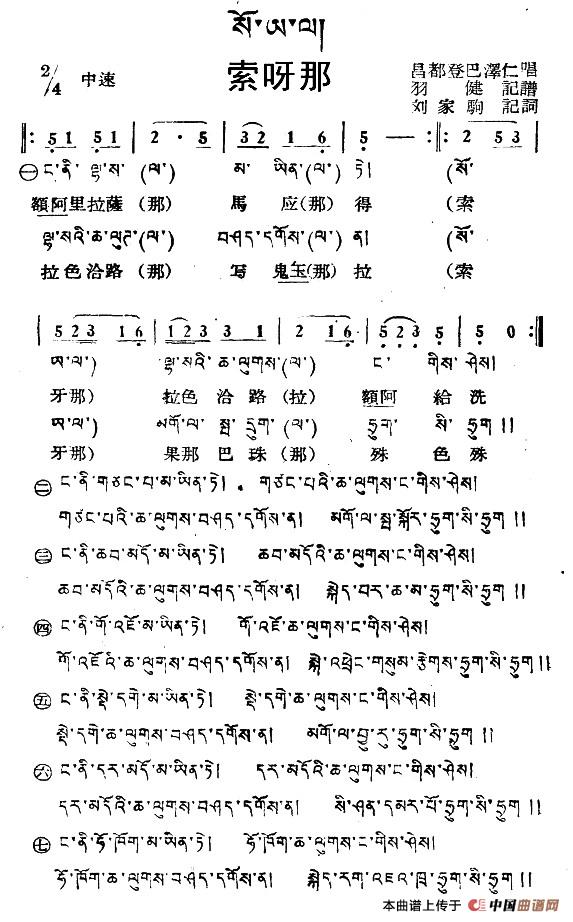 སོ་ཡ་ལ།
索呀那
2/4 中速
昌都登巴澤仁唱
羽健記譜
刘家駒記詞
‖: 5 1 5 1 | 2 · 5 | 3 2 1 6 | 5 — :‖: 2 5 3 |
㊀ ང་ནི་ལྷ་ས་(ལ་) མ་ཡིན་(ལ་) ཏེ། (སོ་
額阿里拉薩(那) 馬应(那)得 (索
ལྷ་སའི་ཆ་ལུད་(ལ་) བཤད་དགོས་(ལ་) ན། (སོ་
拉色洽路(那) 写鬼玉(那)拉 (索
| 5 2 3 1 6 | 1 2 3 3 1 | 2 1 6 | 5 2 3 5 | 5 0 :‖
ཡ་ལ་) ལྷ་སའི་ཆ་ལུགས་(ལ་) ང་གིས་ཤེས།
牙那) 拉色洽路(拉) 額阿給洗
ཡ་ལ་) མགོ་ལ་སྤ་དྲུག་(ལ་) ཧྲུག་སི་ཧྲུག།།
牙那) 果那巴珠(那) 殊色殊
㊁ ང་ནི་གཙང་པ་མ་ཡིན་ཏེ། གཙང་པའི་ཆ་ལུགས་ང་གིས་ཤེས།
གཙང་པའི་ཆ་ལུགས་བཤད་དགོས་ན། མགོ་ལ་སྤ་སྐོར་ཧྲུག་སི་ཧྲུག།།
㊂ ང་ནི་ཆབ་མདོ་མ་ཡིན་ཏེ། ཆབ་མདོའི་ཆ་ལུགས་ང་གིས་ཤེས།
ཆབ་མདོའི་ཆ་ལུགས་བཤད་དགོས་ན། སྐེད་བར་ཆ་མ་ཧྲུག་སི་ཧྲུག།།
㊃ ང་ནི་གོ་འཇོ་མ་ཡིན་ཏེ། གོ་འཇོ་ཆ་ལུགས་ང་གིས་ཤེས།
གོ་འཇོའི་ཆ་ལུགས་བཤད་དགོས་ན། སྐེ་འཕྲེང་གསུམ་རྩེགས་ཧྲུག་སི་ཧྲུག།།
㊄ ང་ནི་སྡེ་དགེ་མ་ཡིན་ཏེ། སྡེ་དགེ་ཆ་ལུགས་ང་གིས་ཤེས།
སྡེ་དགེ་ཆ་ལུགས་བཤད་དགོས་ན། མགོ་ལ་བྱུ་རུ་ཧྲུག་སི་ཧྲུག།།
㊅ ང་ནི་དར་མདོ་མ་ཡིན་ཏེ། དར་མདོའི་ཆ་ལུགས་ང་གིས་ཤེས།
དར་མདོའི་ཆ་ལུགས་བཤད་དགོས་ན། སི་ཤན་དམར་པོ་ཧྲུག་སི་ཧྲུག།།
㊆ ང་ནི་ཧོ་ཁོག་མ་ཡིན་ཏེ། ཧོ་ཁོག་ཆ་ལུགས་ང་གིས་ཤེས།
ཧོ་ཁོག་ཆ་ལུགས་བཤད་དགོས་ན། སྐེད་རག་འཇའ་ཁྲ་ཧྲུག་སི་ཧྲུག།།
本曲谱上传于 中国曲谱网